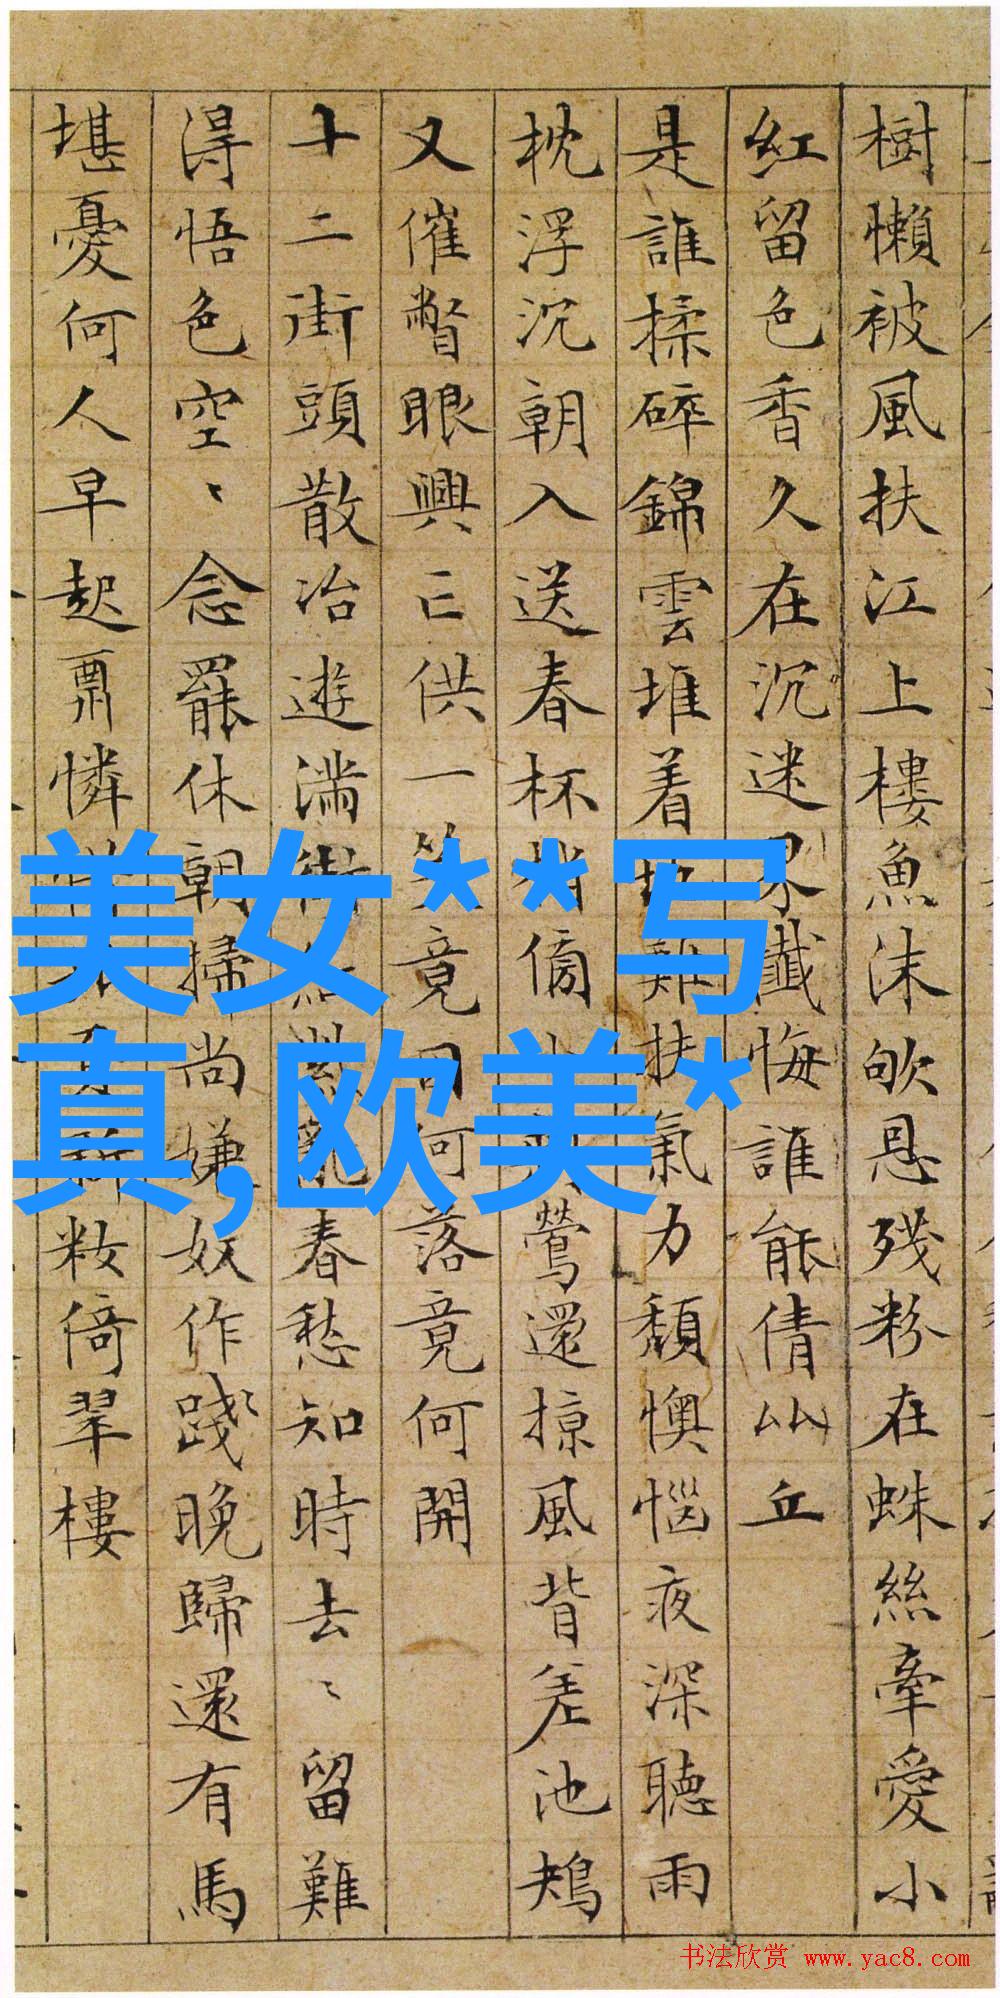 樹懶被風扶江上樓魚沫欨恩殘粉在蛛絲牽愛小
紅留色香久在沉迷界懺悔誰能倩比丘
是誰揉碎錦雲堆着難扶氣力頹懊惱夜深聽雨
枕浮沉朝入送春杯梢傍鶯還掠風背差池鴂
又催瞥眼興亡供一笑竟因何落竟何開
十二街頭散冶遊滿街紅紫亂春愁知時去〻留難
得悟色空〻念罷休朝掃尚嫌奴作踐晚歸還有馬
堪憂何人早起憐粧倚翠樓
美女**写
真,欧美*
书法欣赏 www.yac8.com